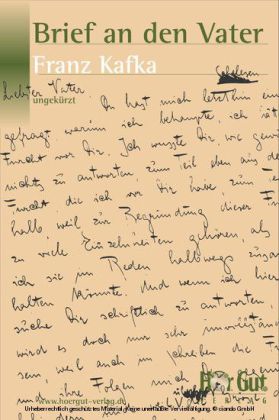 Brief an den Vater
Franz Kafka
Schelesen
Liebster Vater
ungekürzt
Du hast mich letzthin einmal
gefragt, warum ich behaupte, ich hätte
Furcht vor Dir. Ich wusste Dir, wie gewöhnlich,
nichts zu antworten, zum Teil eben aus der
Furcht die ich vor Dir habe, zum Teil
halb weil zur Begründung dieser Furcht
zu viele Einzelnheiten gehören, als dass
ich sie im Reden halbwegs zusammen
halten könnte. Und wenn ich hier
suche Dir schriftlich zu antworten
wird es doch nur sehr
sein weil auch im Schreiben die
ihre Folgen mich
HörGut
VERLAG
www.hoergut-verlag.de
Urheberrechtlich geschütztes Material. Keine unerlaubte Vervielfältigung. © ciando GmbH